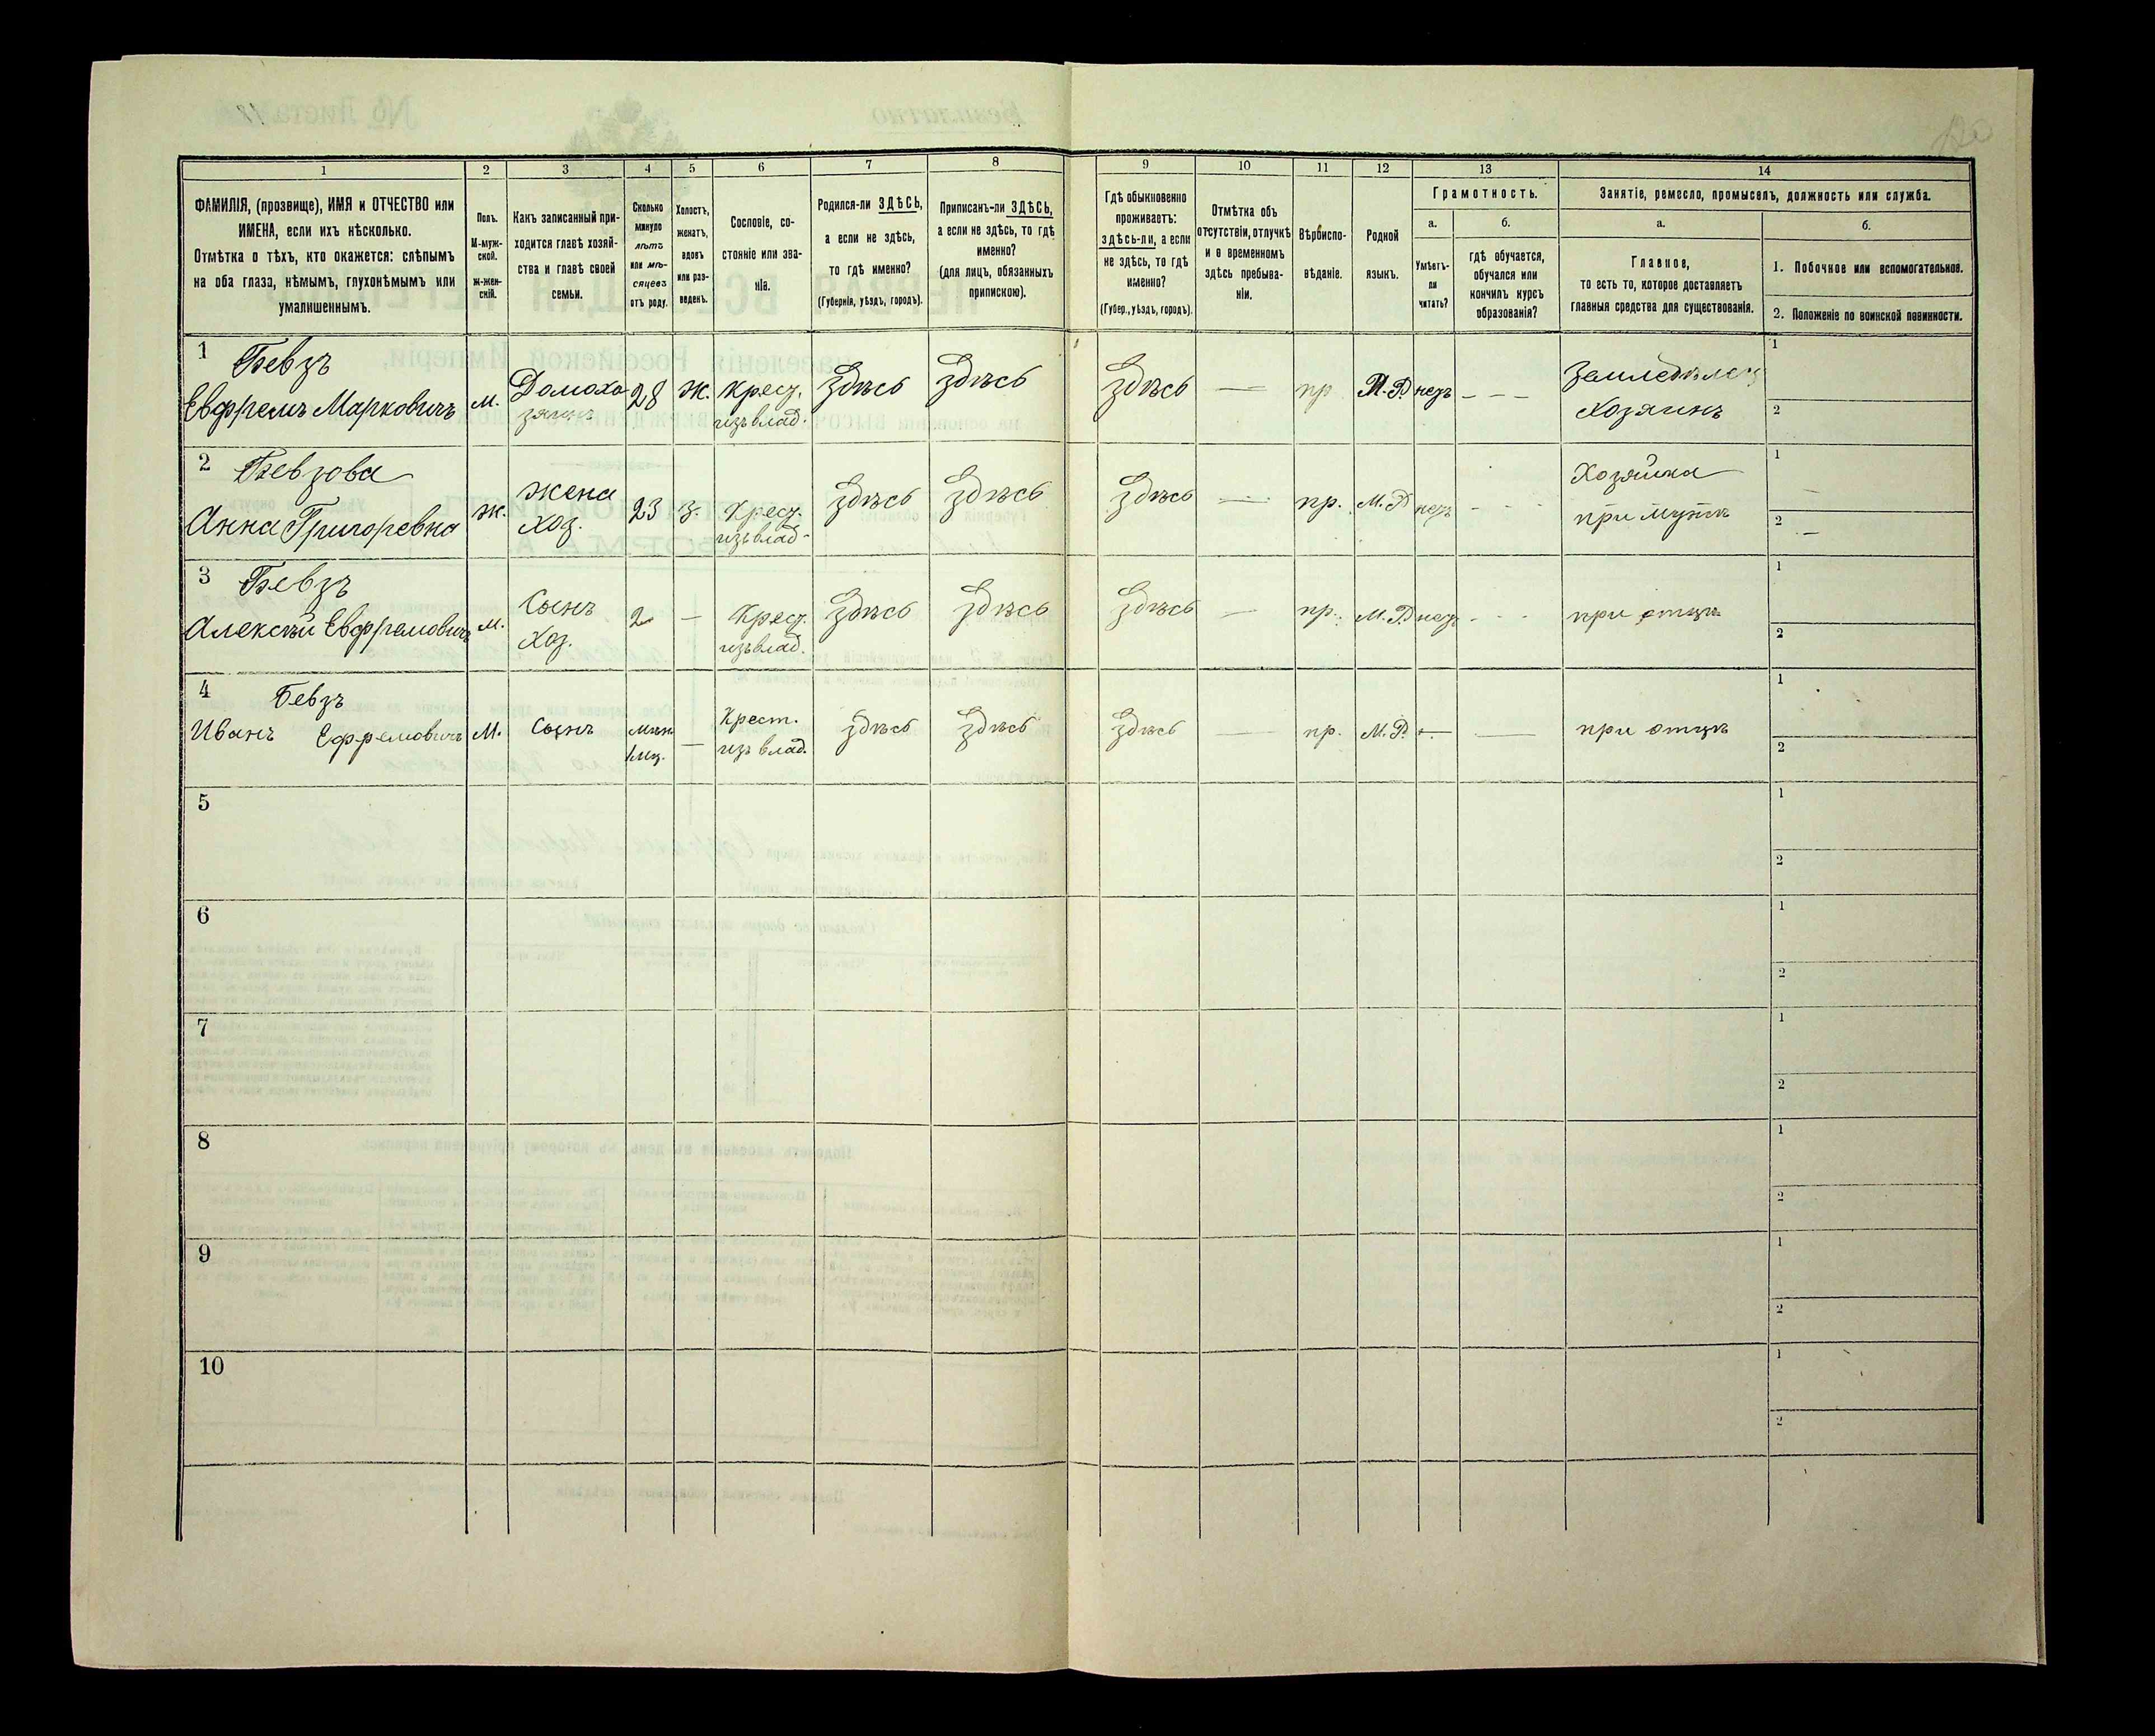 1 2 3 4 5 6 7 8 9 10 11 12 13 14
ФАМИЛІЯ, (прозвище), ИМЯ и ОТЧЕСТВО или
ИМЕНА, если ихъ нѣсколько.
Отмѣтка о тѣхъ, кто окажется: слѣпымъ
на оба глаза, нѣмымъ, глухонѣмымъ или
умалишеннымъ.
Полъ.
М-муж-
ской.
ж-жен-
скій.
Какъ записанный при-
ходится главѣ хозяй-
ства и главѣ своей
семьи.
Сколько
минуло
лѣтъ
или мѣ-
сяцевъ
отъ роду.
Холостъ,
женатъ,
вдовъ
или раз-
веденъ.
Сословіе, со-
стояніе или зва-
ніе.
Родился-ли ЗДѢСЬ,
а если не здѣсь,
то гдѣ именно?
(Губернія, уѣздъ, городъ).
Приписанъ-ли ЗДѢСЬ,
а если не здѣсь, то гдѣ
именно?
(для лицъ, обязанныхъ
припискою).
Гдѣ обыкновенно
проживаетъ:
здѣсь-ли, а если
не здѣсь, то гдѣ
именно?
(Губер., уѣздъ, городъ).
Отмѣтка объ
отсутствіи, отлучкѣ
и о временномъ
здѣсь пребыва-
ніи.
Вѣроиспо-
вѣданіе.
Родной
языкъ.
Грамотность.
а.
Умѣетъ-
ли
читать?
б.
гдѣ обучается,
обучался или
кончилъ курсъ
образованія?
Занятіе, ремесло, промыселъ, должность или служба.
а.
Главное,
то есть то, которое доставляетъ
главныя средства для существованія.
б.
1. Побочное или вспомогательное.
2. Положеніе по воинской повинности.
1 Бевзъ
Евфремъ Марковичъ м. Домохо
зяинъ 28 ж. крест. изъ влад. Здѣсь Здѣсь Здѣсь — пр М.Р. нетъ - - - Земледѣлец
Хозяинъ 1
2
2 Бевзова
Анна Григоревна ж. жена
хоз. 23 з. Крест. изъ влад. Здѣсь Здѣсь Здѣсь — пр. М.Р нетъ - - - Хозяйка
при мужѣ 1 —
2 —
3 Бевзъ
Алексѣй Евфремовичъ м. Сынъ
Хоз. 2 — Крест. изъ влад. Здѣсь Здѣсь Здѣсь — пр. М.Р. нетъ - - - при отцѣ 1
2
4 Бевзъ
Иванъ Ефремовичъ М. Сынъ
1 мц. — Крест.
изъ влад. здѣсь здѣсь здѣсь — пр. М.Р. — — при отцѣ 1
2
5 1
2
6 1
2
7 1
2
8 1
2
9 1
2
10 1
2